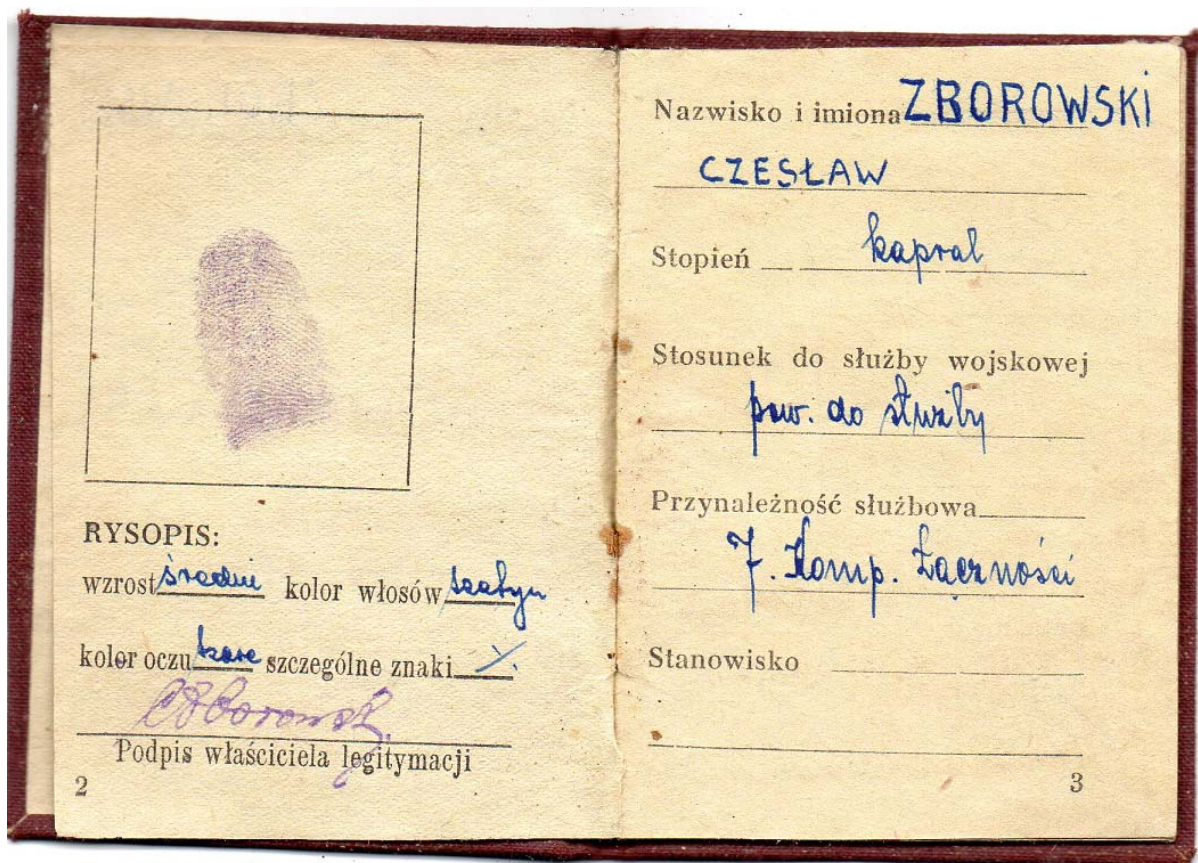 RYSOPIS:
wzrost średni kolor włosów szatyn
kolor oczu szare szczególne znaki
Podpis właściciela legitymacji
2
Nazwisko i imiona ZBOROWSKI
CZESŁAW
Stopień kapral
Stosunek do służby wojskowej
pow. do służby
Przynależność służbowa
7. Komp. Łączności
Stanowisko
3